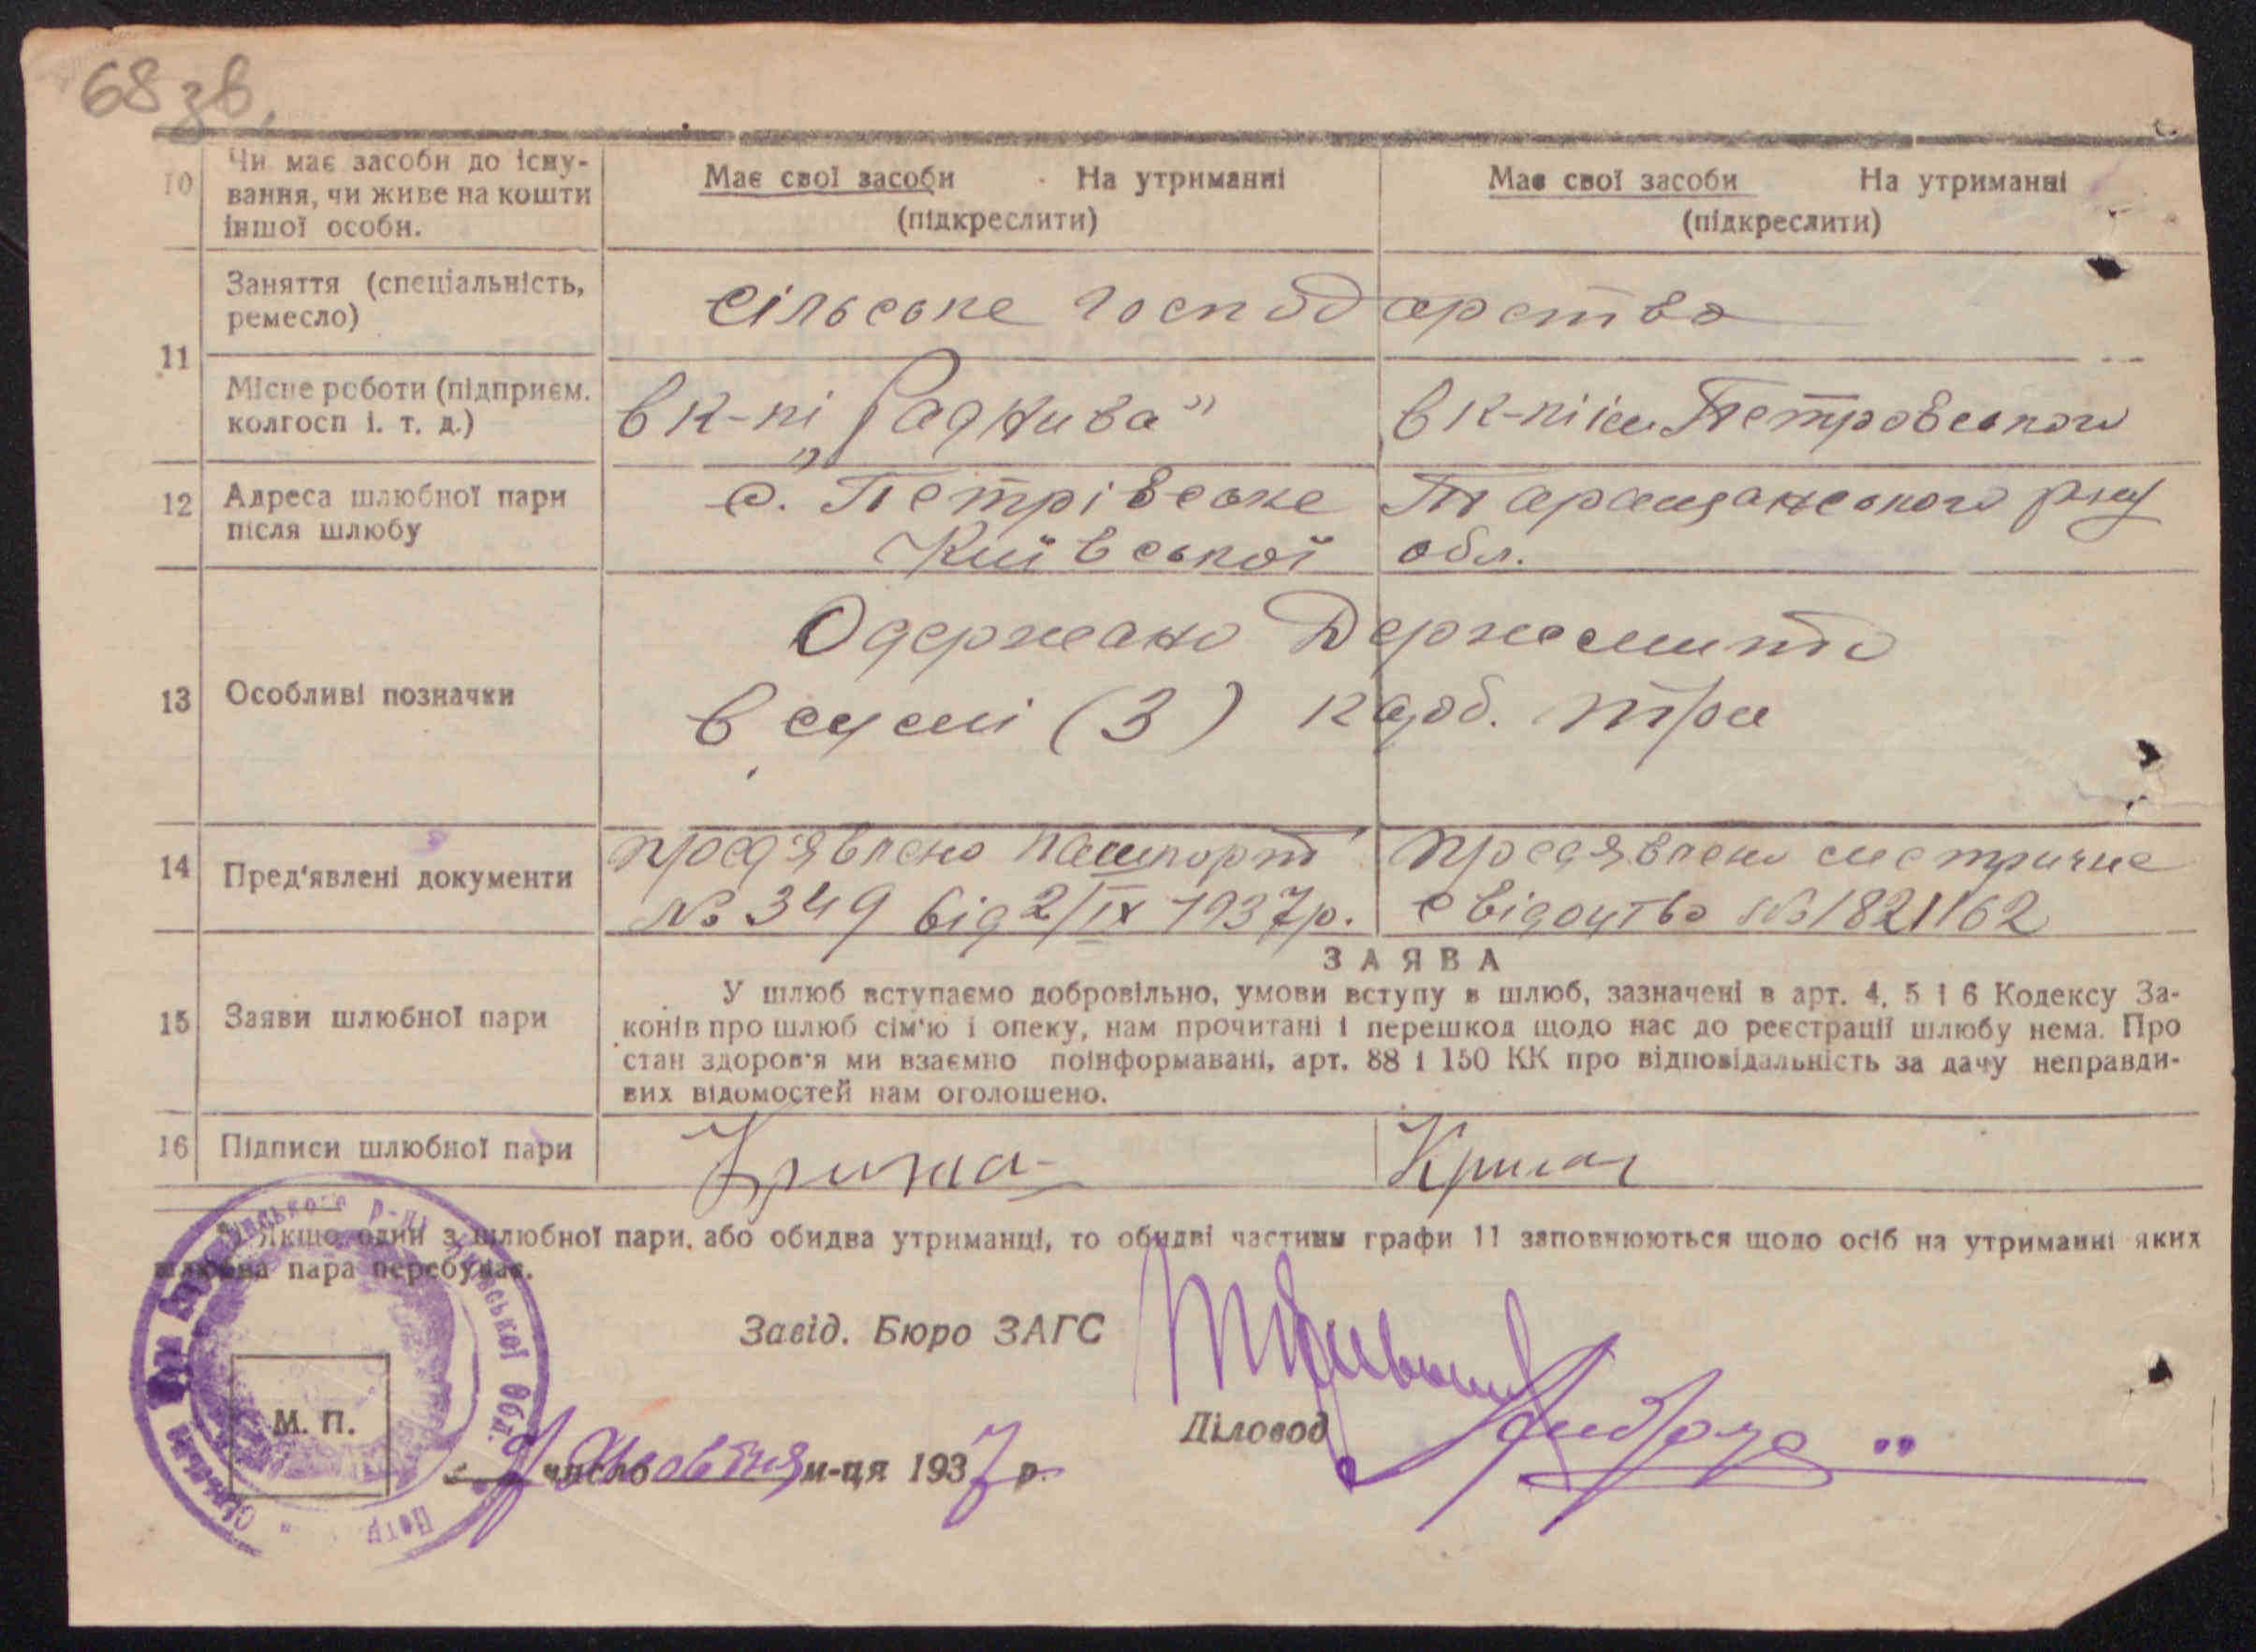 68 зв.
10 Чи має засоби до існу-
вання, чи живе на кошти
іншої особи.
Має свої засоби На утриманні
(підкреслити)
Має свої засоби На утриманні
(підкреслити)
11
Заняття (спеціальність,
ремесло)
сільське господарство
Місце роботи (підприєм.
колгосп і. т. д.)
в к-пі „Рад Нива”
в к-пі ім. Петровського
12 Адреса шлюбної пари
після шлюбу
с. Петрівське Таращанського р-ну
Київської обл.
13 Особливі позначки
Одержано Держмито
в сумі (3) карб. три
14 Пред'явлені документи
пред'явлено пашпорт
№ 349 від 2/IX 1937р.
предявлено метричне
свідоцтво №1821162
15 Заяви шлюбної пари
ЗАЯВА
У шлюб вступаємо добровільно, умови вступу в шлюб, зазначені в арт. 4, 5 і 6 Кодексу За-
конів про шлюб сім'ю і опеку, нам прочитані і перешкод щодо нас до реєстрації шлюбу нема. Про
стан здоров'я ми взаємно поінформавані, арт. 88 і 150 КК про відповідальність за дачу неправди-
вих відомостей нам оголошено.
16 Підписи шлюбної пари
*) Якщо один з шлюбної пари, або обидва утриманці, то обидві частини графи 11 заповнюються щодо осіб на утриманні яких
шлюбна пара перебуває.
Завід. Бюро ЗАГС
М. П.
Діловод
9 число Жовтня м-ця 1937 р.
р-ну Київської Обл.